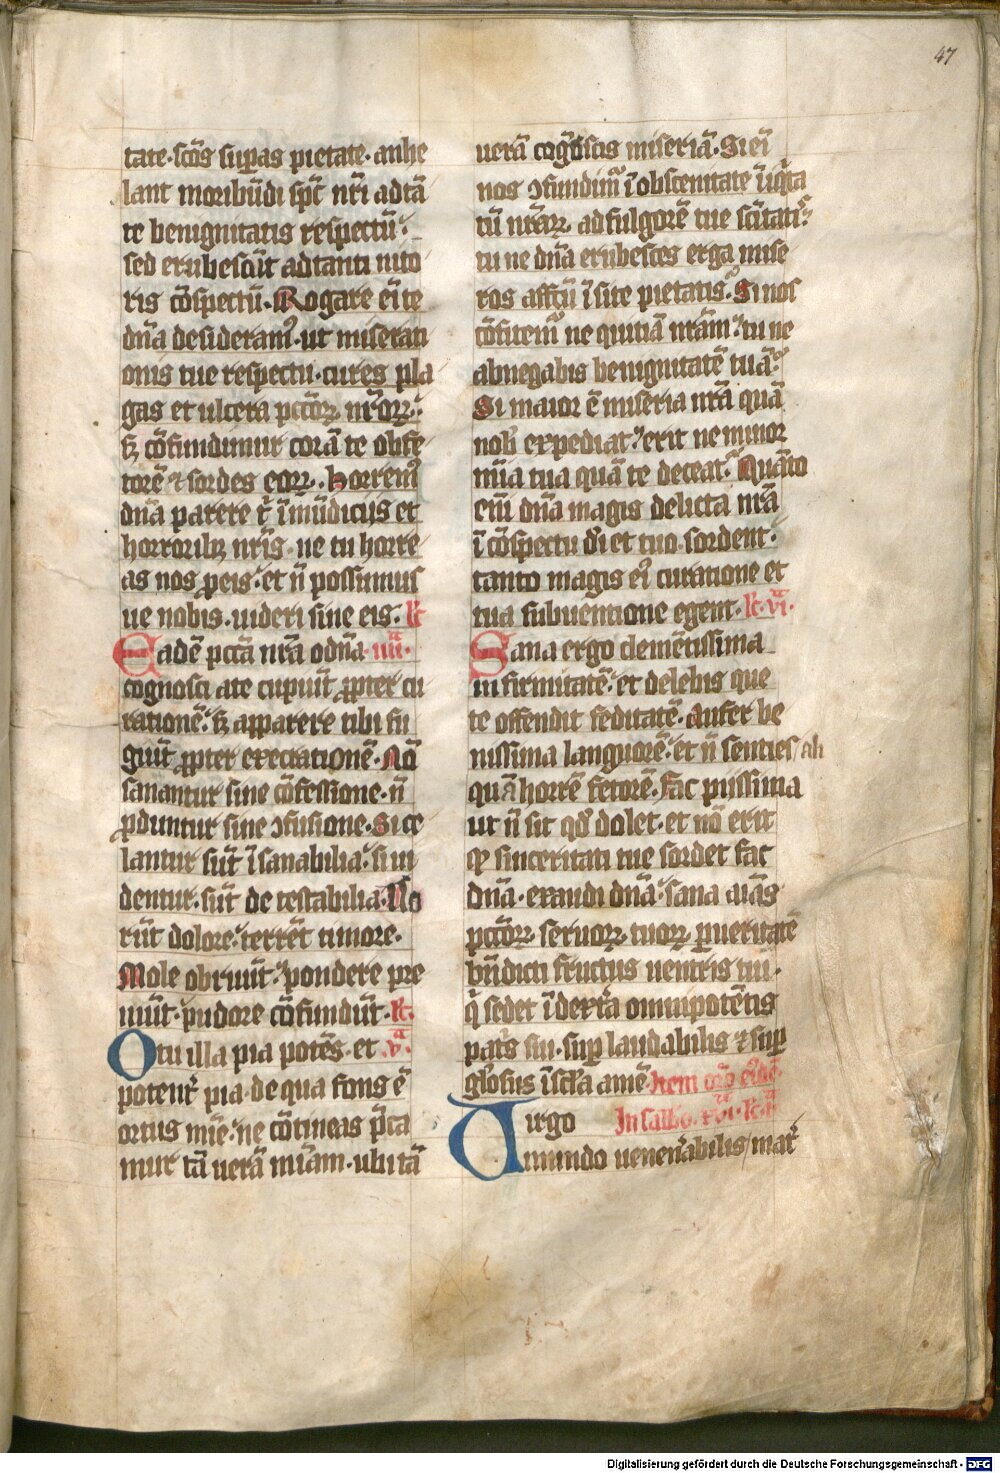 47
tate·scōs supas pietate·anhe
lant moribūdi spc̄ nr̄i ad tā
te benignitatis respectū·
sed erubescūt ad tanti nito
ris cōspectū·Rogare ei te
dn̄a desideram᷒·ut miserati
onis tue respectu·cures pla
gas et ulcera pctōꝝ nr̄oꝝ·
sꝫ cōfundimur corā te obfe
torē ⁊ sordes eoꝝ·horrem᷒
dn̄a parere t̄ īmūdicijs et
horroribꝫ nr̄is·ne tu horre
as nos ꝓ eis·et n̄ possumus
ue nobis·uideri sine eis·lc̄
Eadē pctā nr̄a o dn̄a·iiii·
cognosci a te cupiūt ꝓpter cu
rationē·sꝫ apparere tibi fu
giūt ꝓpter execrationē·Nō
sanantur sine cōfessione·n̄
ꝓduntur sine ↄfusione·Si ce
lantur sūt īsanabilia·si ui
dentur·sūt detestabilia·No
rūt dolore·terrēt timore·
Mole obruūt·pondere pre
mūt·pudore cōfundūt·lc̄·
O tu illa pia potēs·et v·
potent᷑ pia·de qua fons ē
ortus mīe·ne cōtineas p̄ca
mur tā uerā mīam·ubi tā
uerā cog̅scis miseriā·Si ei̅
nos ↄfundim᷒ ī obscenitate īiq̄ta
tū nr̄aꝝ ad fulgorē tue sc̄itatis
tu ne dn̄a erubesces erga mise
ros affc̄tū īsite pietatis·Si nos
cōfitem᷒ ne quitiā nr̄am·tu ne
abnegabis benignitatē tuā·
Si maior ē miseria nr̄a quā
nob᷒ expediat·erit ne minor
mīa tua quā te deceat·Quāto
ei̅ dn̄a magis delicta nr̄a
ī cōspectu di̅ et tuo·sordent·
tanto magis ei᷒ curatione et
tua subuentione egent·lc̄·vi·
Sana ergo clemētissima
infirmitatē·et delebis que
te offendit feditatē·Aufer be
nissima languorē·et n̄ senties/ali
quā horrē fetorē·Fac pijssima
ut n̄ sit qd̓ dolet·et nō erit
ꝙ sinceritati tue sordet fac
dn̄a·exaudi dn̄a·sana aīas
pctōꝝ seruoꝝ tuoꝝ ꝑ ueritatē
bn̄dicti fructus uentris tui·
q̄ sedet ī dextra omnipotētis
patris sui·suꝑ laudabilis ⁊ suꝑ
gl̓osus īscl̓a amē·Item or̄o ei᷒dē·
Uirgo
mundo uenerabilis/mat᷑